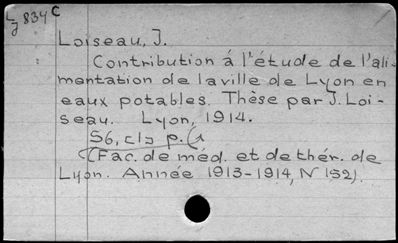 L 834 C
J
Loiseau, J.
Contribution á l'étude de l'ali-
mentation de la ville de Lyon en
eaux potables. Thèse par J. Loi-
seau. Lyon, 1914.
56, cl3 p.
(Fac. de méd. et de thér. de
Lyon. Année 1913-1914, N 152).